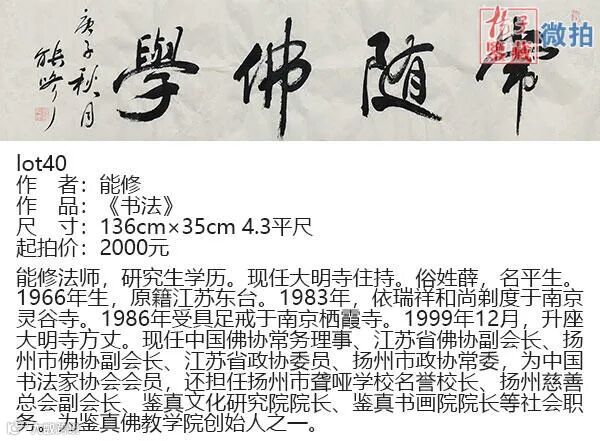 常随佛學
庚子秋月
能修
扬子
鉴藏
微拍
lot40
作 者：能修
作 品：《书法》
尺 寸：136cm×35cm 4.3平尺
起拍价：2000元
能修法师，研究生学历。现任大明寺住持。俗姓薛，名平生。
1966年生，原籍江苏东台。1983年，依瑞祥和尚剃度于南京
灵谷寺。1986年受具足戒于南京栖霞寺。1999年12月，升座
大明寺方丈。现任中国佛协常务理事、江苏省佛协副会长、扬
州市佛协副会长、江苏省政协委员、扬州市政协常委，为中国
书法家协会会员，还担任扬州市聋哑学校名誉校长、扬州慈善
总会副会长、鉴真文化研究院院长、鉴真书画院院长等社会职
务。为鉴真佛教学院创始人之一。